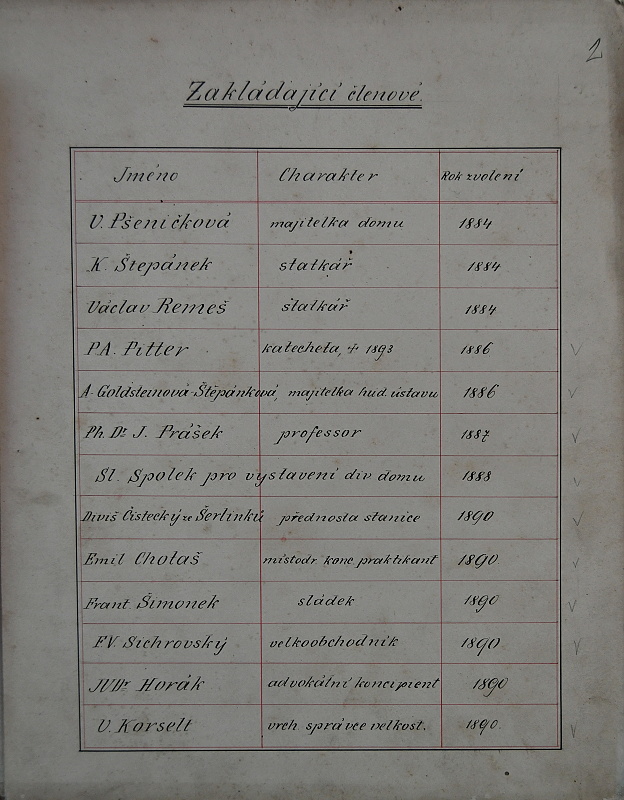 2
Zakládající členové.
Jméno Charakter Rok zvolení
V. Pšeničková majitelka domu 1884
K. Štepánek statkář 1884
Václav Remeš statkář 1884
P.A. Pitter katecheta, + 1893 1886
A. Goldsteinová-Štěpánková, majitelka hud. ústavu 1886
Ph. Dr J. Prášek professor 1887
Sl. Spolek pro vystavení div. domu 1888
Diviš Čistecký ze Šerlinků přednosta stanice 1890
Emil Chotaš místodr. konc. praktikant 1890
Frant. Šimonek sládek 1890
F.V. Sichrovský velkoobchodník 1890
JUDr Horák advokátní koncipient 1890
V. Korselt vrch. správce velkost. 1890.